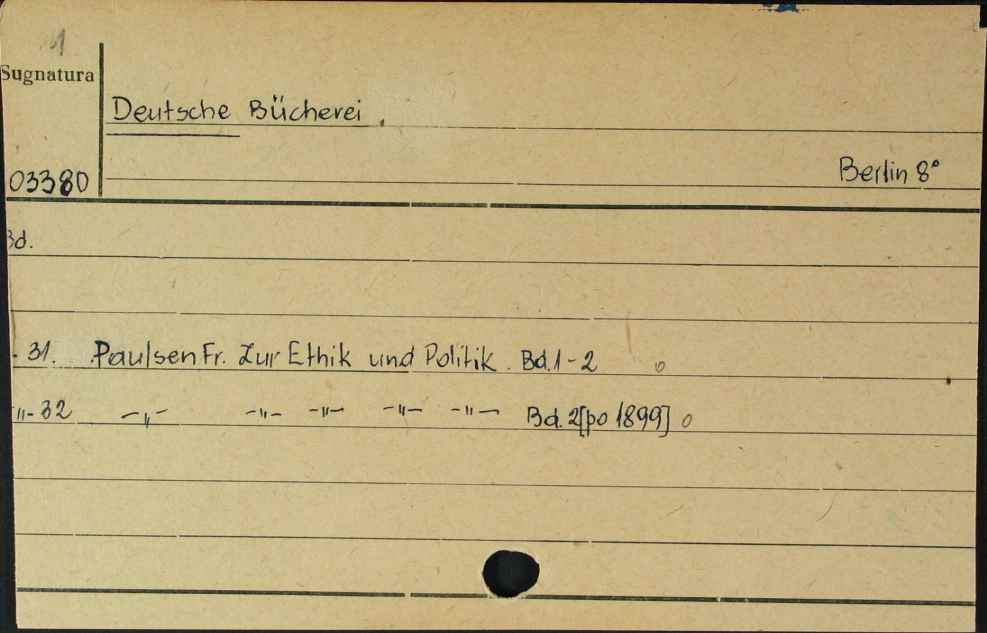 1
Sugnatura
Deutsche Bücherei.
Berlin 8°
03380
Bd.
- 31. Paulsen Fr. Zur Ethik und Politik. Bd. 1-2 o
-"- 32 -"- -"- -"- -"- -"- Bd. 2 [po 1899] o